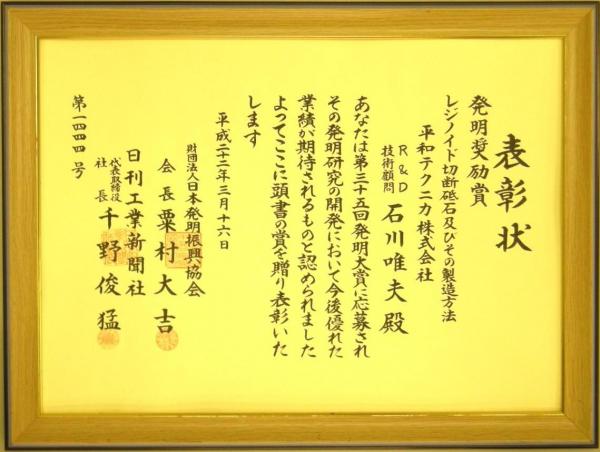 表彰状
発明奨励賞
レジノイド切断砥石及びその製造方法
平和テクニカ株式会社
R&D
技術顧問
石川唯夫殿
あなたは第三十五回発明大賞に応募され
その発明研究の開発において今後優れた
業績が期待されるものと認められました
よってここに頭書の賞を贈り表彰いた
します
平成二十二年三月十六日
財団法人日本発明振興協会
会長 粟村大吉
日刊工業新聞社
代表取締役
社長
千野俊猛
第一四四四号